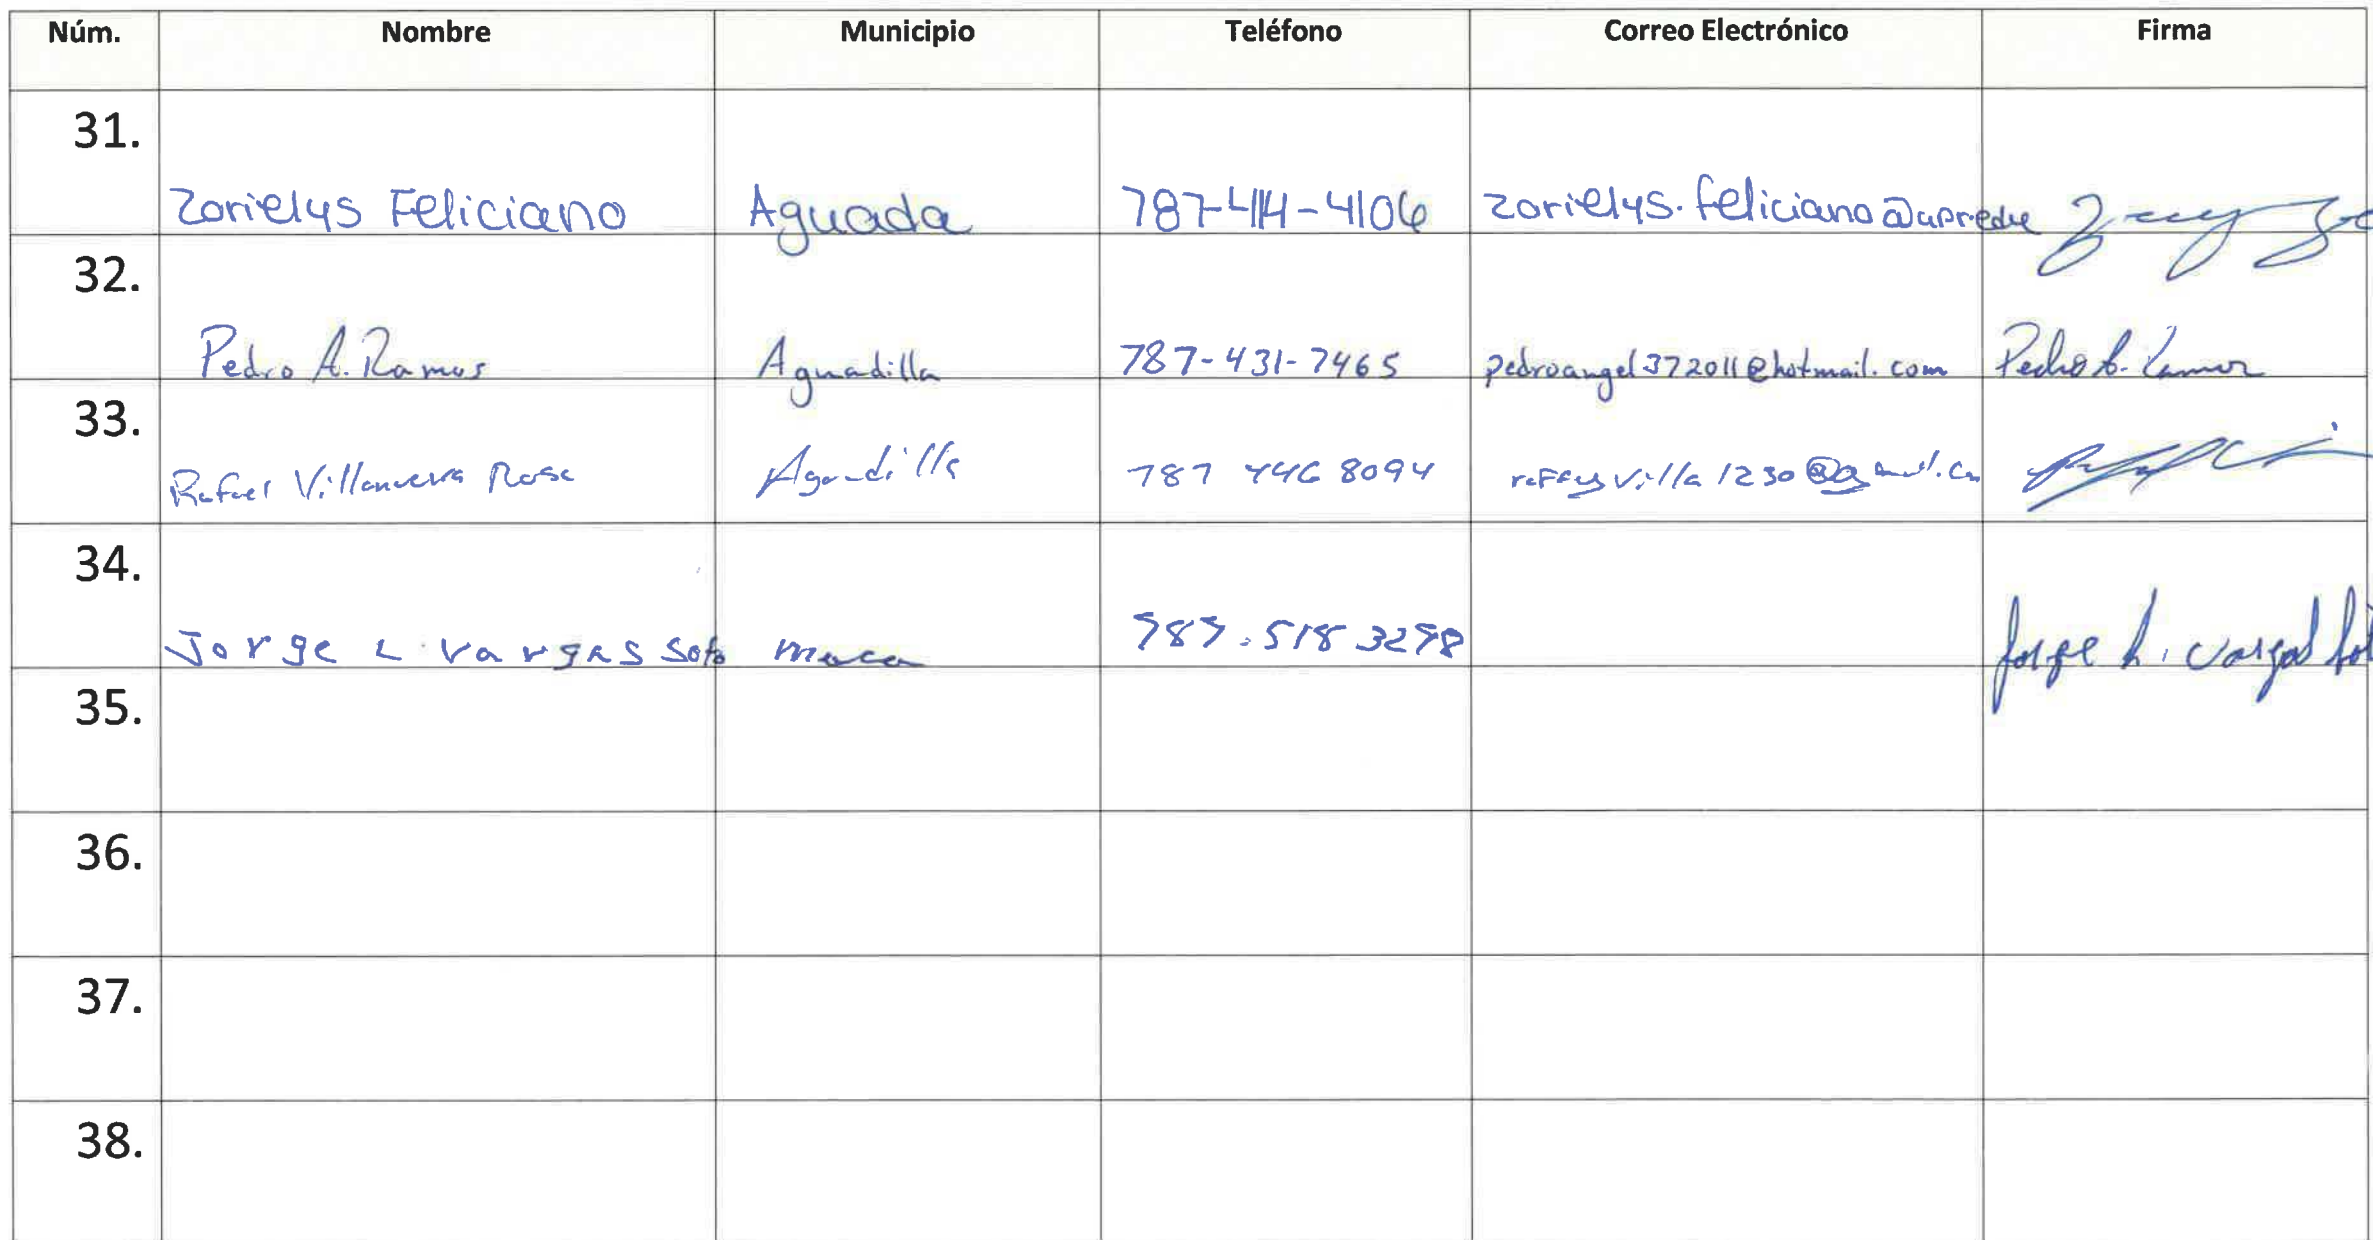 Núm. Nombre Municipio Teléfono Correo Electrónico Firma
31.
Zorielys Feliciano Aguada 787-414-4106 zorielys.feliciano@upr.edu
32.
Pedro A. Ramos Aguadilla 787-431-7465 pedroangel372011@hotmail.com Pedro A. Ramos
33.
Rafael Villanueva Rosa Aguadilla 787 446 8094
34.
Jorge L. vargas Soto moca 787.518 3278 Jorge L. Vargas Sot
35.
36.
37.
38.